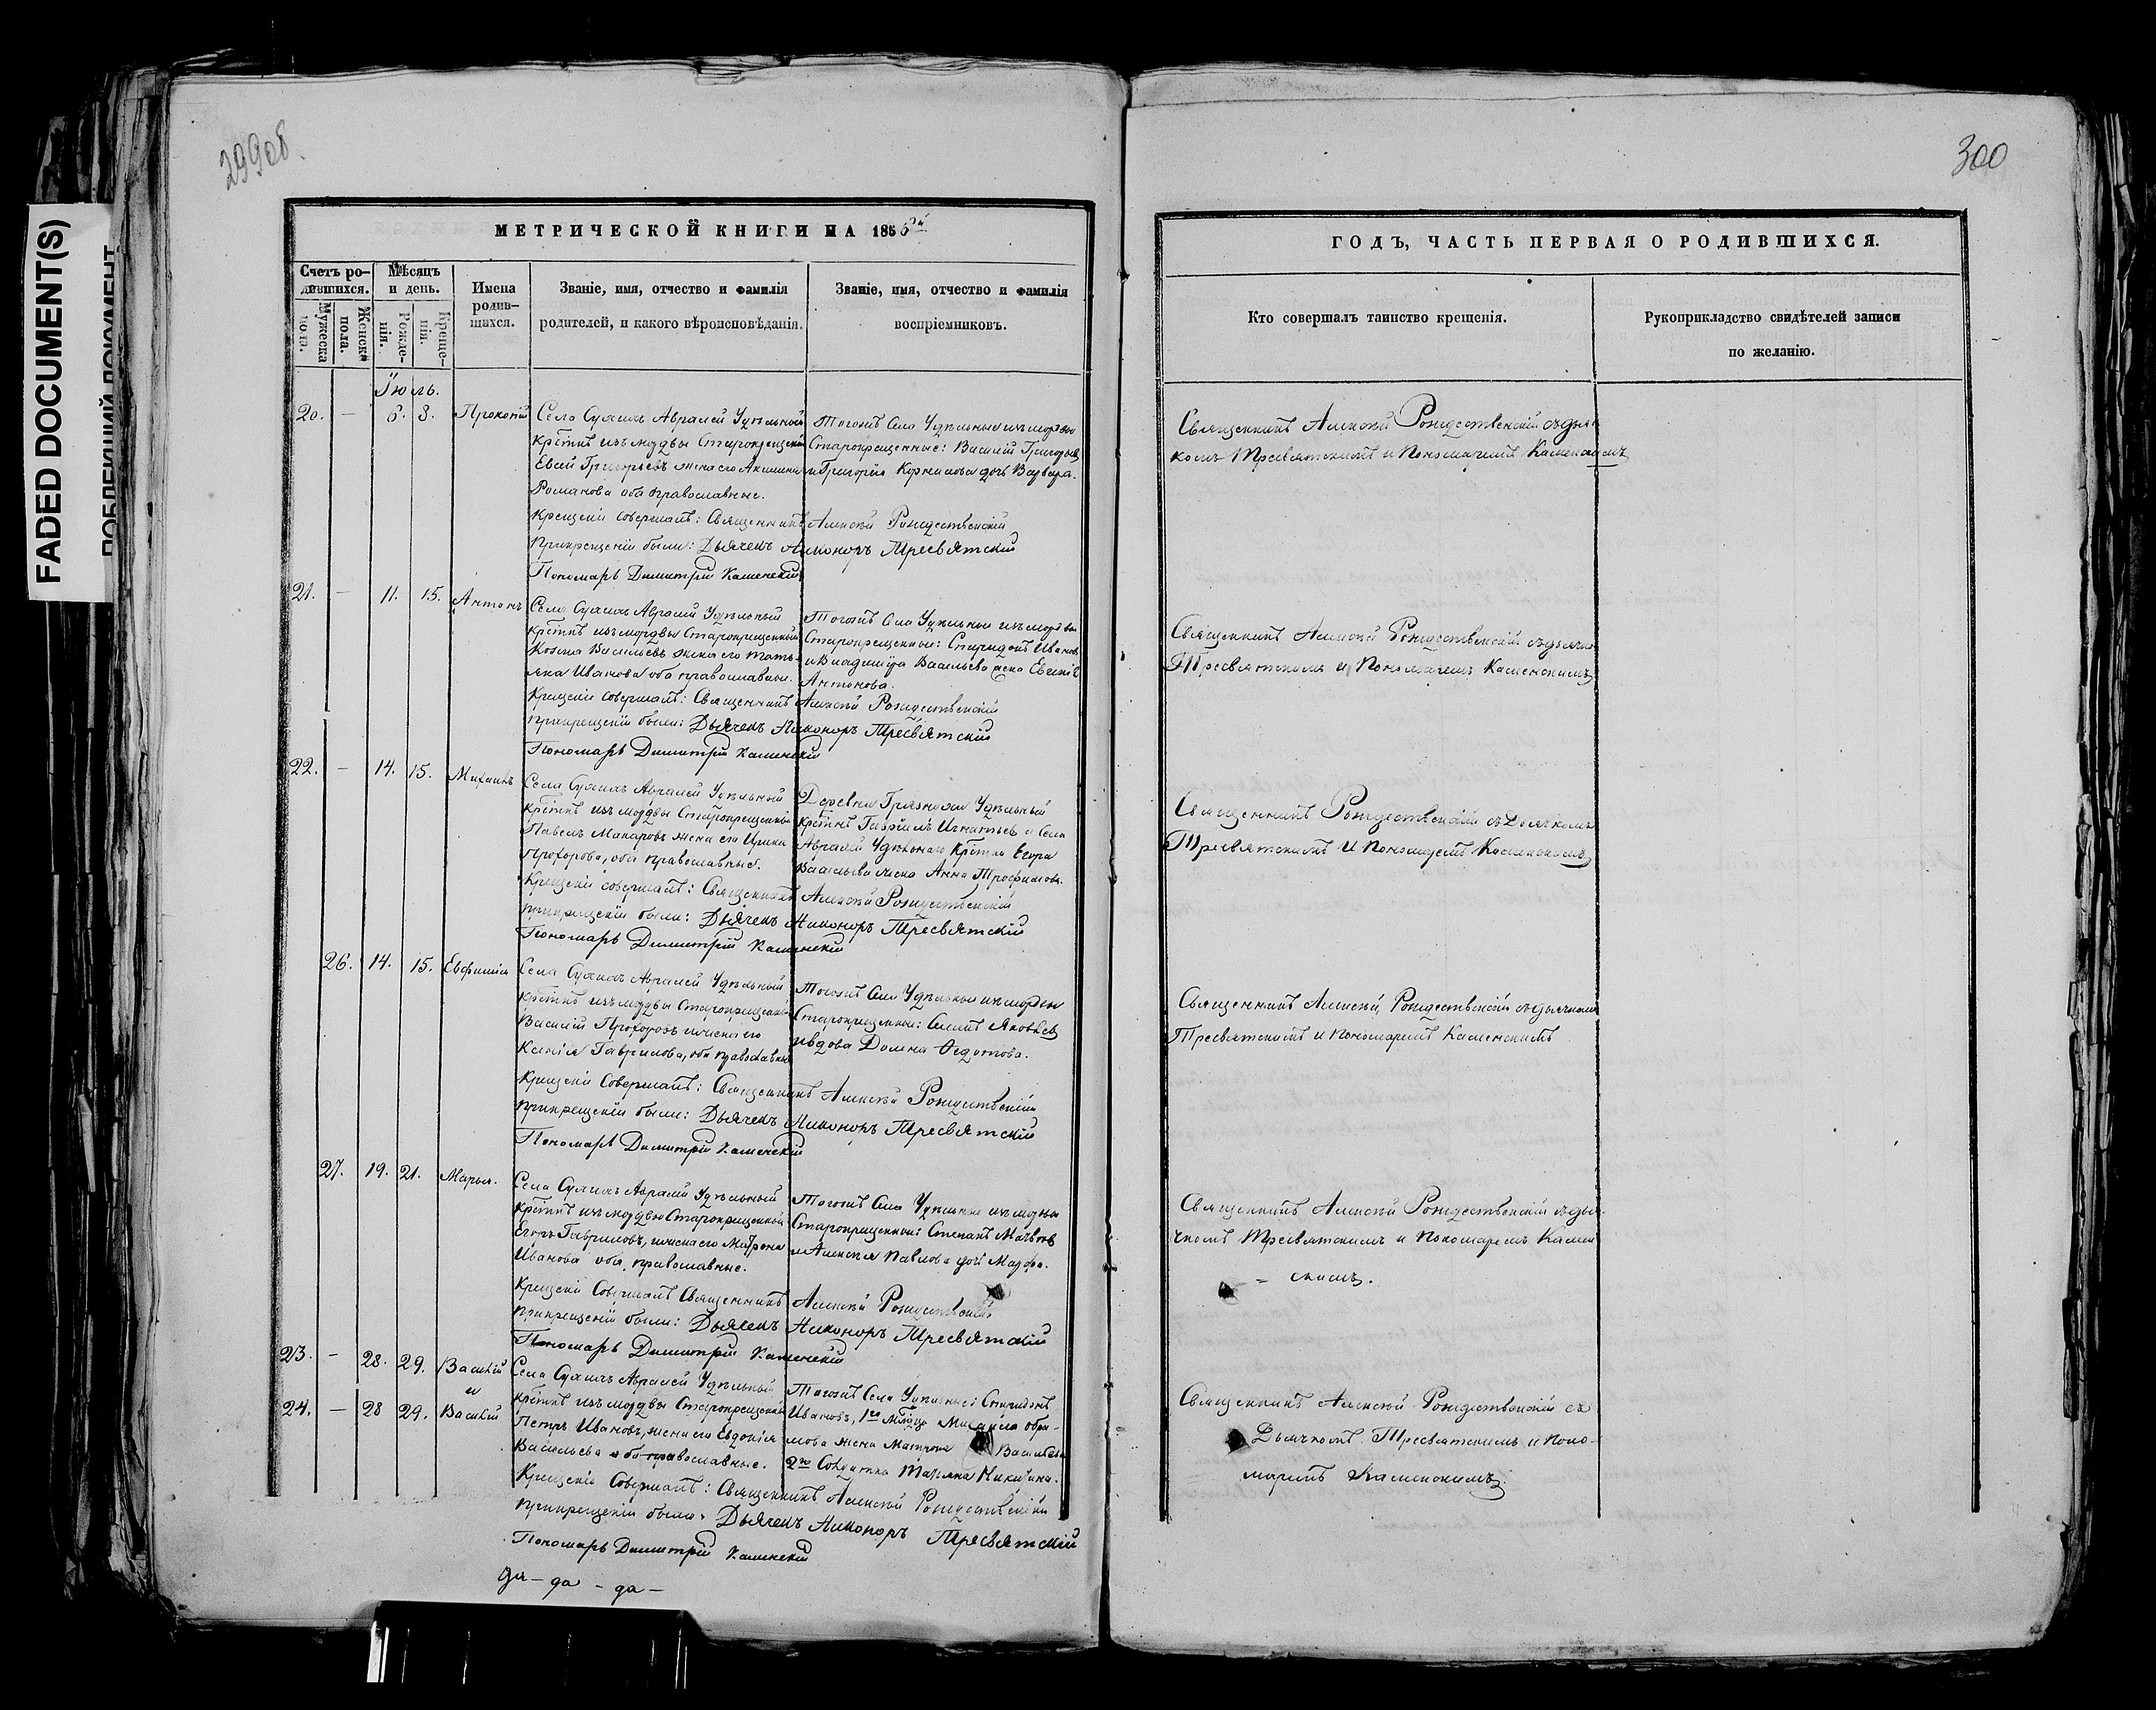 299об.
МЕТРИЧЕСКОЙ КНИГИ НА 1858й
Счетъ ро-
дившихся.
Мужеска
пола.
Женска
пола.
Мѣсяцъ
и день.
Рожде-
нія.
Креще-
нія.
Имена
родив-
шихся.
Званіе, имя, отчество и фамилія
родителей, и какого вѣроисповѣданія.
Званіе, имя, отчество и фамилія
воспріемниковъ.
Іюль.
20. — 6. 8. Прокопій
Села Сухихъ Авралей Удѣльный
Крѣтнъ изъ мордвы Старокрещеный
Евсей Григорьевъ жена его Акилина
Романова оба православные.
Тогожъ Села Удѣльные изъ мордвы
Старокрещенные: Василій Григорьев
и Григорія Корнилова дочь Варвара.
Крещеніе совершалъ: Священникъ Алексѣй Рождественскій
При крещеніи были: Дьячекъ Никоноръ Тресвятскій
Пономарь Димитрій Каменскій
21. — 11. 15. Антонъ
Села Сухихъ Авралей Удѣльный
Крѣтнъ изъ мордвы Старокрещенный
Козма Васильевъ жена его Тать-
яна Иванова оба православные.
Тогожъ Села Удѣльные изъ мордвы
Старокрещенные: Спиридонъ Иванов
и Владиміра Васильева жена Евгенія
Антонова.
Крещеніе совершалъ: Священникъ Алексѣй Рождественскій
При крещеніи были: Дьячекъ Никоноръ Тресвятскій
Пономарь Димитрій Каменскій
22. — 14. 15. Михаилъ
Села Сухихъ Авралей Удѣльный
Крѣтнъ изъ мордвы Старокрещенный
Павелъ Макаровъ жена его Ирина
Прохорова, оба православные.
Деревни Грязнухи Удѣльный
Крѣтнъ Гавріилъ Игнатьев и Села
Авралей Удѣльнаго Крѣтна Егора
Васильева жена Анна Трофимова.
Крещеніе совершалъ: Священникъ Алексѣй Рождественскій
При крещеніи были: Дьячекъ Никоноръ Тресвятскій
Пономарь Димитрій Каменскій
26. 14. 15. Евфимія
Села Сухихъ Авралей Удѣльный
Крѣтнъ изъ мордвы Старокрещенный
Василій Прохоровъ и жена его
Ксенія Гаврилова, оба православные
Тогожъ Села Удѣльные изъ мордвы
Старокрещенные: Яковлев
и вдова Домна Федотова.
Крещеніе Совершалъ: Священникъ Алексѣй Рождественскій
При крещеніи были: Дьячекъ Никоноръ Тресвятскій
Пономарь Димитрій Каменскій
27. 19. 21. Марья.
Села Сухихъ Авралей Удѣльный
Крѣтнъ изъ мордвы Старокрещенный
Егоръ Гавриловъ, и жена его Матрона
Иванова оба православные.
Тогожъ Села Удѣльные изъ мордвы
Старокрещенные: Степанъ Матвѣев
и Алексѣя Павлова дочь Марфа.
Крещеніе Совершалъ Священникъ Алексѣй Рождественскій
При крещеніи были: Дьячекъ Никоноръ Тресвятскій
Пономарь Димитрій Каменскій
23. — 28. 29. Василій
и
24. — 28 29. Василій
Села Сухихъ Авралей Удѣльный
Крѣтнъ изъ мордвы Старокрещенный
Петръ Ивановъ, жена его Евдокія
Васильева оба православные.
Тогожъ Села Удѣльные: Спиридонъ
Ивановъ, 1го Михаила
жена Матрона Васильева
2го Солдатка Татьяна Никитина.
Крещеніе Совершалъ: Священникъ Алексѣй Рождественскій
При крещеніи были: Дьячекъ Никоноръ Тресвятскій
Пономарь Димитрій Каменскій
да — да — да —
300
ГОДЪ, ЧАСТЬ ПЕРВАЯ О РОДИВШИХСЯ.
Кто совершалъ таинство крещенія.
Рукоприкладство свидѣтелей записи
по желанію.
Священникъ Алексѣй Рождественскій съ дья-
комъ Тресвятскимъ и Пономаремъ Каменскимъ
Священникъ Алексѣй Рождественскій съ дьячко
Тресвятскимъ и Пономаремъ Каменскимъ
Священникъ Рождественскій съ Дьячкомъ
Тресвятскимъ и Пономаремъ Каменскимъ
Священникъ Алексѣй Рождественскій съ дьячкомъ
Тресвятскимъ и Пономаремъ Каменскимъ
Священникъ Алексѣй Рождественскій съ дья-
чкомъ Тресвятскимъ и Пономаремъ Камен
- скимъ.
Священникъ Алексѣй Рождественскій съ
Дьячкомъ Тресвятскимъ и Поно-
маремъ Каменскимъ.
FADED DOCUMENT(S)